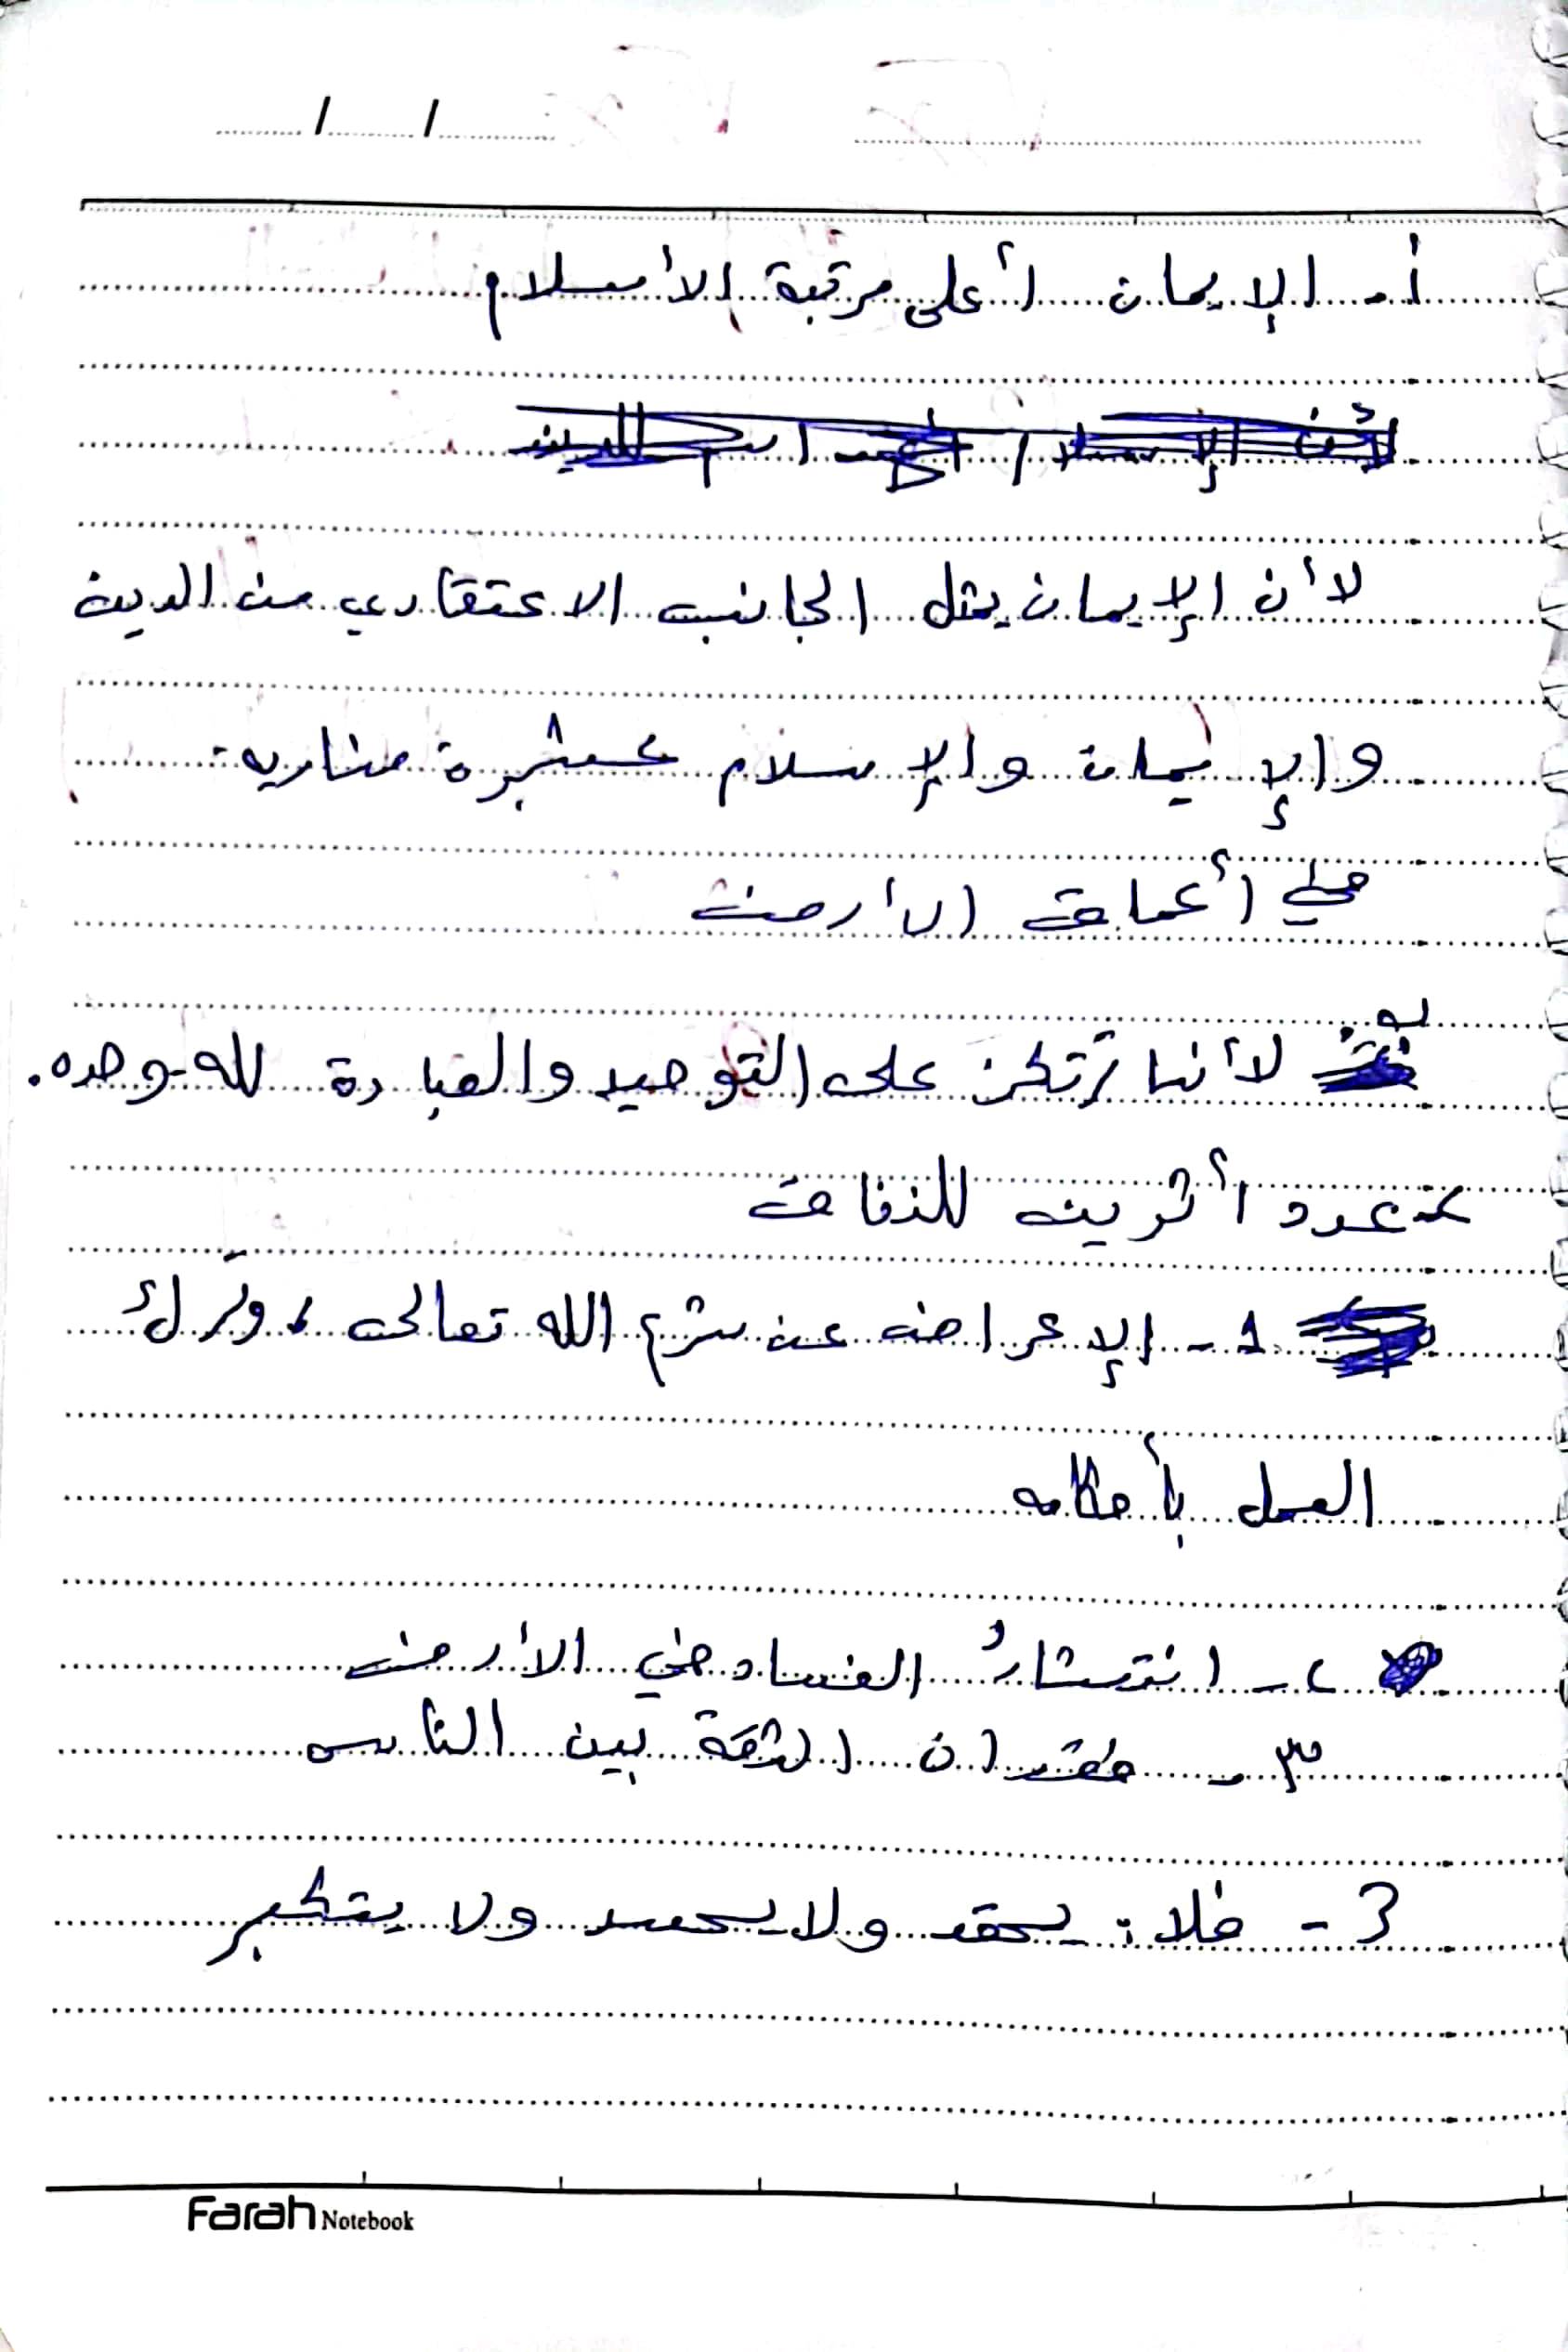 / /
أ - الإيمان أعلى مرتبة الأسلام
لأن الإيمان يمثل الجانب الاعتقادي من الدين
والإيمان والإسلام كشجرة ضاربة
في أعماق الأرض
ب. لأننا نرتكز على التوحيد والعبادة لله وحده.
عدد أثرين للنفاق
1 - الإعراض عن شرع الله تعالى، وترك
العمل بأحكامه
٢ - انتشار الفساد في الأرض
٣ - فقدان الثقة بين الناس
3 - فلا: يحقد ولا يحسد ولا يتكبر
Farah Notebook